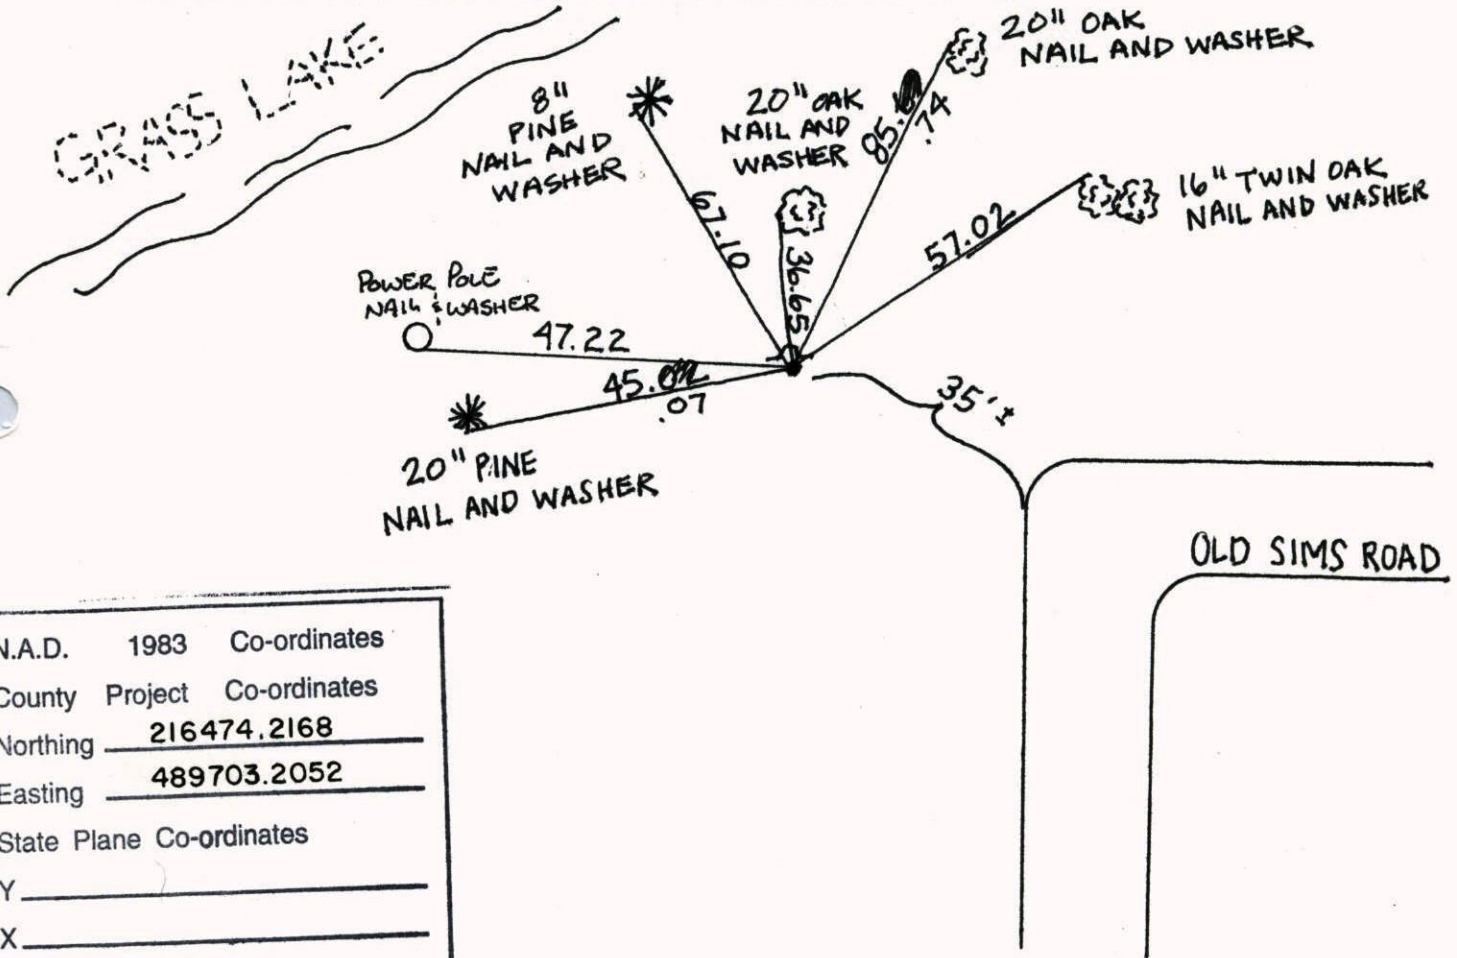 GRASS LAKE
8"
PINE
NAIL AND
WASHER
20" OAK
NAIL AND
WASHER
20" OAK
NAIL AND WASHER
16" TWIN OAK
NAIL AND WASHER
67.10
36.65
85.
.74
57.02
POWER POLE
NAIL & WASHER
47.22
45.
.07
20" PINE
NAIL AND WASHER
35' ±
OLD SIMS ROAD
N.A.D. 1983 Co-ordinates
County Project Co-ordinates
Northing 216474.2168
Easting 489703.2052
State Plane Co-ordinates
Y
X